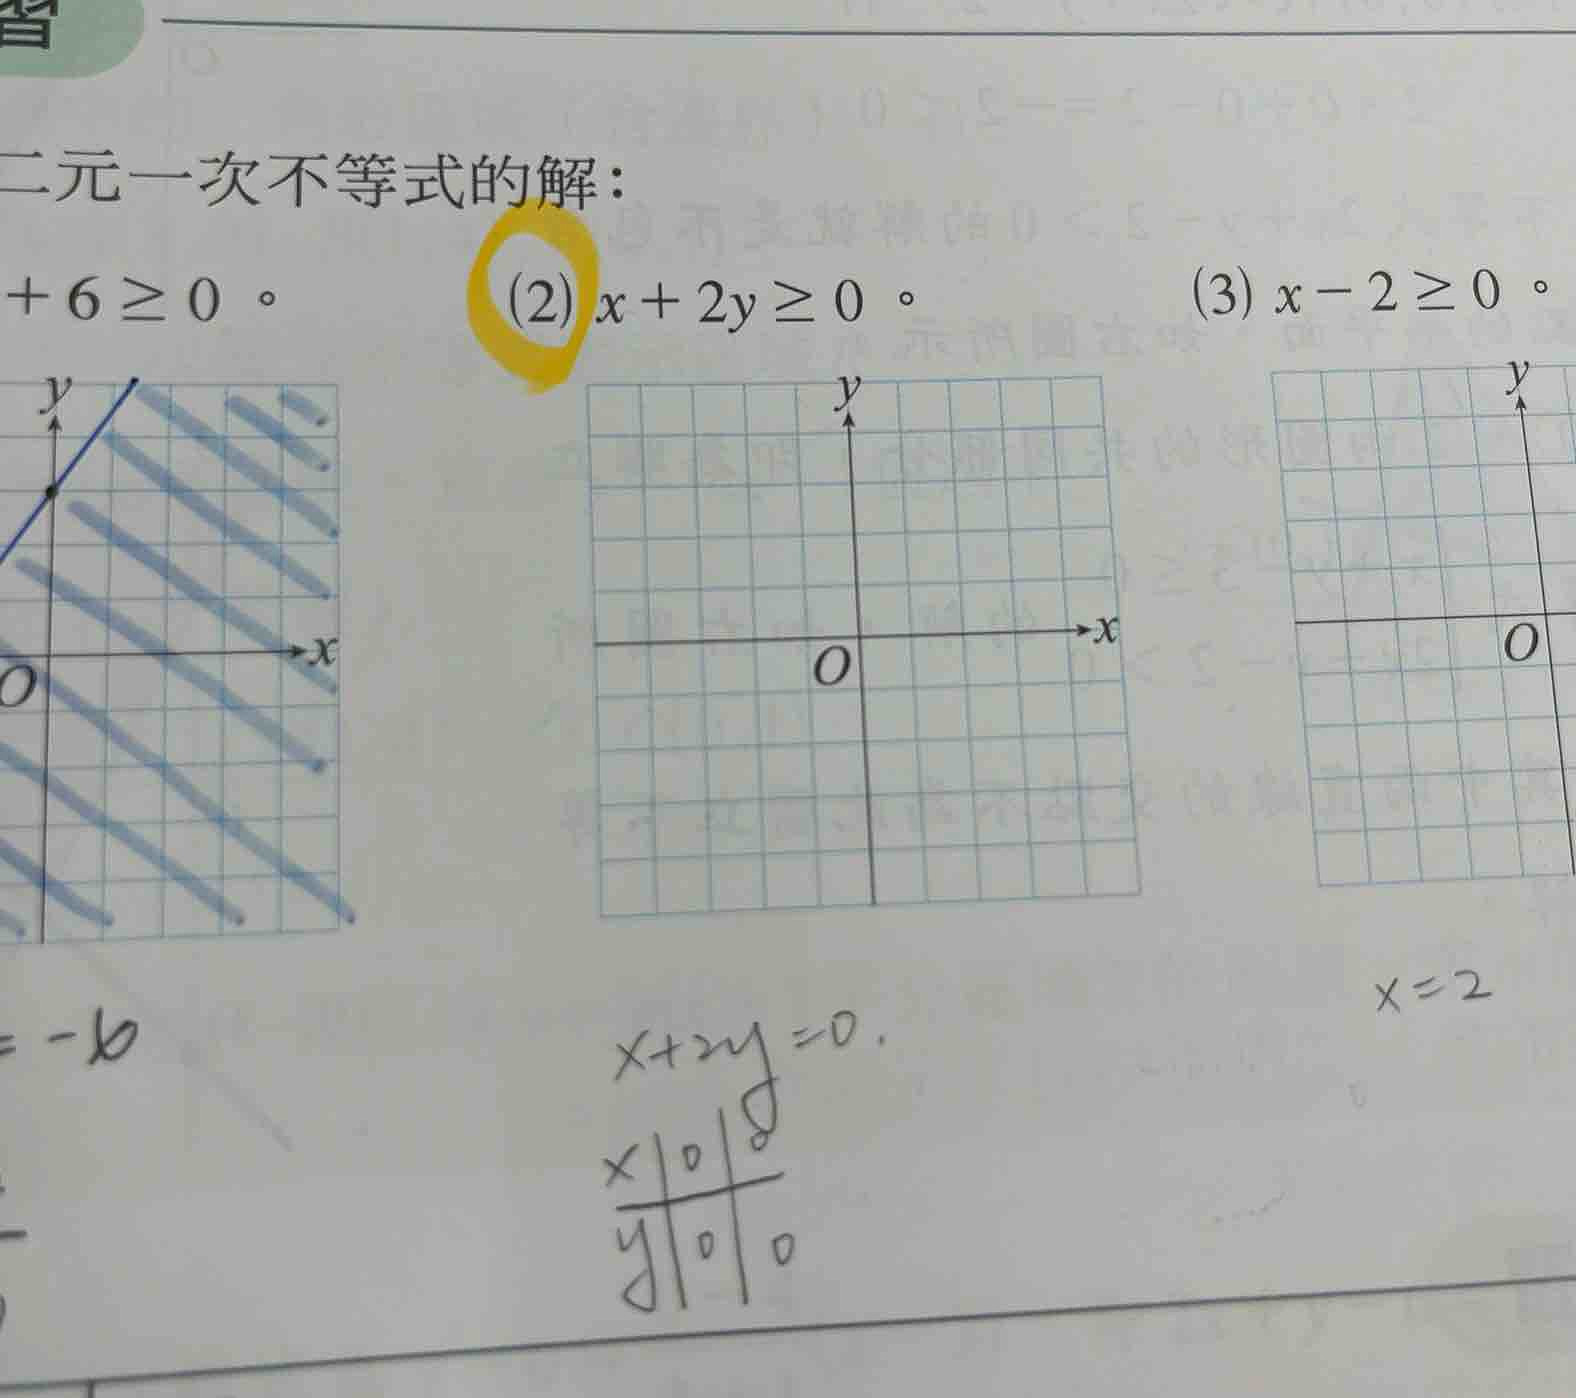 習
二元一次不等式的解：
+ 6 ≥ 0 。 (2) x + 2y ≥ 0 。 (3) x − 2 ≥ 0 。
y y y
x x
O O O
= -6 x+2y=0. x=2
x 0 0
y 0 0